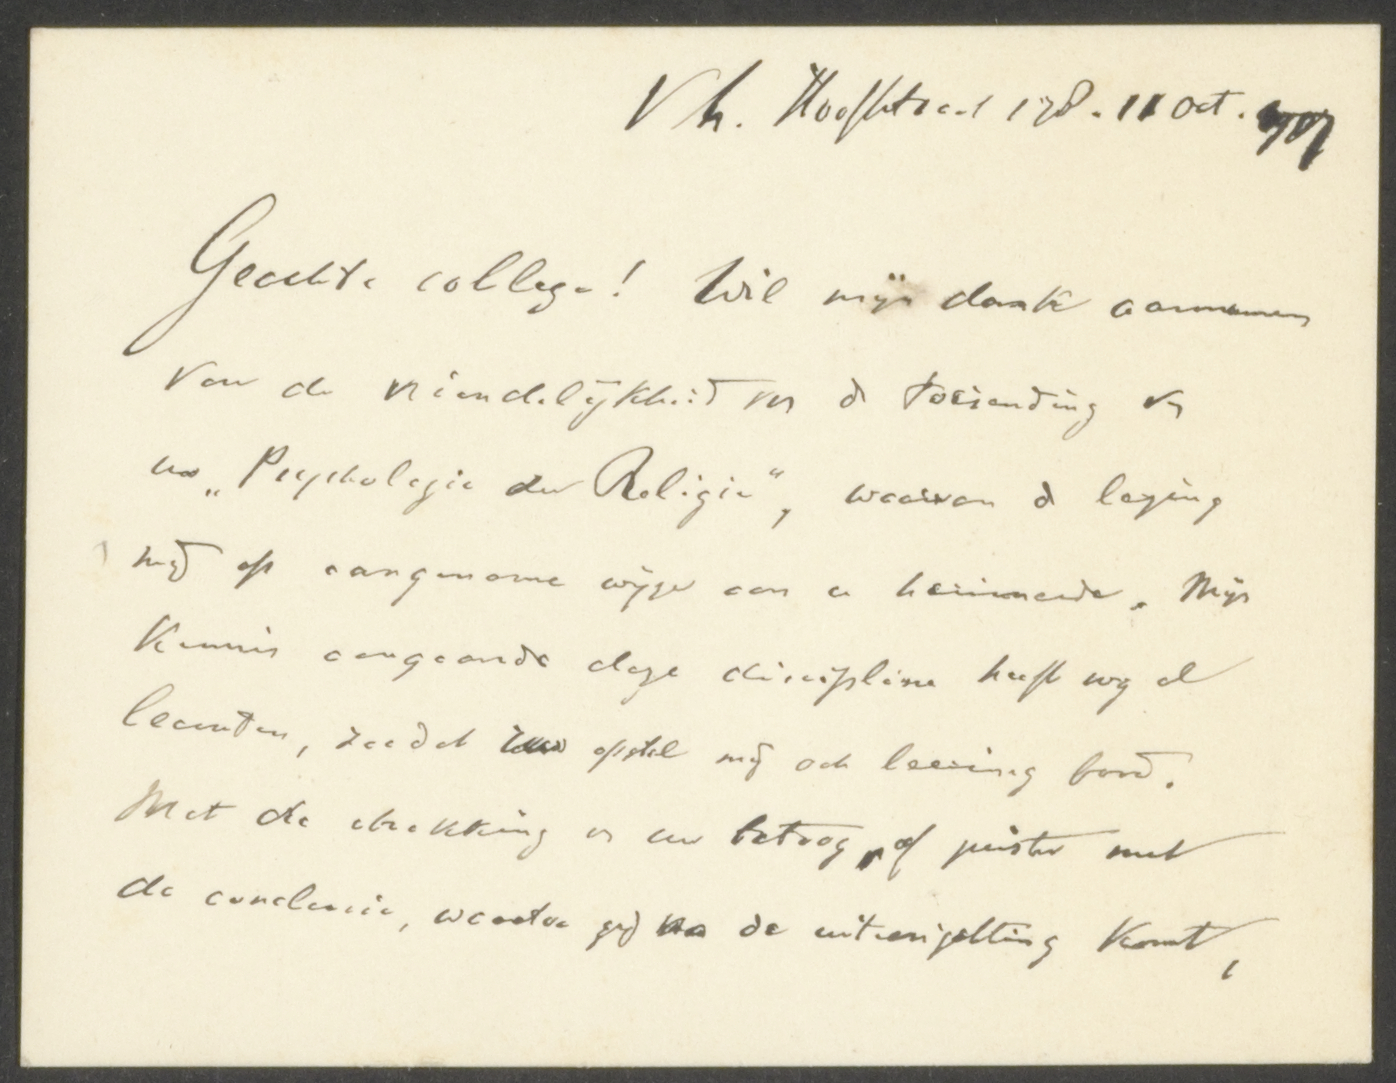 P. C. Hooftstraat 178. 11 Oct. 1907
Geachte collega! Wil mijn dank aannemen
voor de vriendelijkheid van de toezending van
uw „Psychologie der Religie”, waarvan de lezing
mij op aangename wijze aan u herinnerde. Mijn
kennis aangaande deze discipline heeft nog al
leemten, zoodat uw opstel mij ook leering bood.
Met de strekking van uw betoog, of juister met
de conclusie, waartoe gij na de uiteenzetting komt,